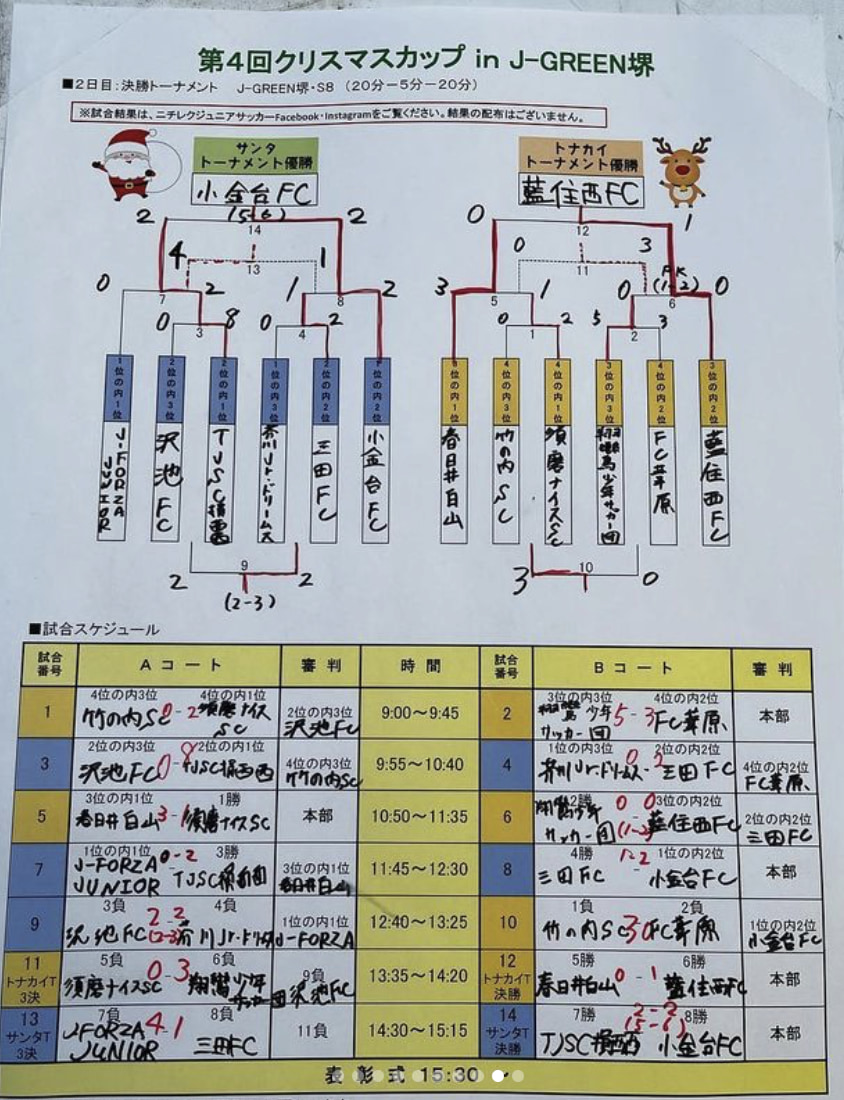 第4回クリスマスカップ in J-GREEN堺
■2日目:決勝トーナメント J-GREEN堺・S8 (20分-5分-20分)
※試合結果は、ニチレクジュニアサッカーFacebook・Instagramをご覧ください。結果の配布はございません。
サンタ
トーナメント優勝
小金台FC
トナカイ
トーナメント優勝
藍住西FC
2 (5-6) 2
14
4 1
13
0 2 1 2
7 8
0 8 0 2
3 4
0 1
12
0 3
11
PK
3 1 0 (1-2) 0
5 6
0 2 5 3
1 2
1位の内1位
J-FORZA JUNIOR
2位の内3位
沢池FC
2位の内1位
TJSC
1位の内3位
芥川Jr.ドリームス
2位の内2位
三田FC
1位の内2位
小金台FC
3位の内1位
春日井白山
4位の内3位
竹の内SC
4位の内1位
須磨ナイスSC
3位の内3位
少年サッカー団
4位の内2位
FC葦原
3位の内2位
藍住西FC
9
2 2
(2-3)
10
3 0
■試合スケジュール
試合番号 Aコート 審判 時間 試合番号 Bコート 審判
1 4位の内3位 4位の内1位 竹の内SC 0-2 須磨ナイスSC 2位の内3位 沢池FC 9:00~9:45 2 3位の内3位 4位の内2位 少年サッカー団 5-3 FC葦原 本部
3 2位の内3位 2位の内1位 沢池FC 0-8 TJSC 4位の内3位 竹の内SC 9:55~10:40 4 1位の内3位 2位の内2位 芥川Jr.ドリームス 0-2 三田FC 4位の内2位 FC葦原
5 3位の内1位 1勝 春日井白山 3-1 須磨ナイスSC 本部 10:50~11:35 6 2勝 3位の内2位 少年サッカー団 0-0 (1-2) 藍住西FC 2位の内2位 三田FC
7 1位の内1位 3勝 J-FORZA JUNIOR 0-2 TJSC 3位の内1位 春日井白山 11:45~12:30 8 4勝 1位の内2位 三田FC 1-2 小金台FC 本部
9 3負 4負 沢池FC 2-2 (2-3) 芥川Jr.ドリーム 1位の内1位 J-FORZA 12:40~13:25 10 1負 2負 竹の内SC 3-0 FC葦原 1位の内2位 小金台FC
11 トナカイT 3決 5負 6負 須磨ナイスSC 0-3 少年サッカー団 9負 沢池FC 13:35~14:20 12 トナカイT 決勝 5勝 6勝 春日井白山 0-1 藍住西FC 本部
13 サンタT 3決 7負 8負 J-FORZA JUNIOR 4-1 三田FC 11負 14:30~15:15 14 サンタT 決勝 7勝 8勝 TJSC 2-2 (5-6) 小金台FC 本部
表彰式 15:30~